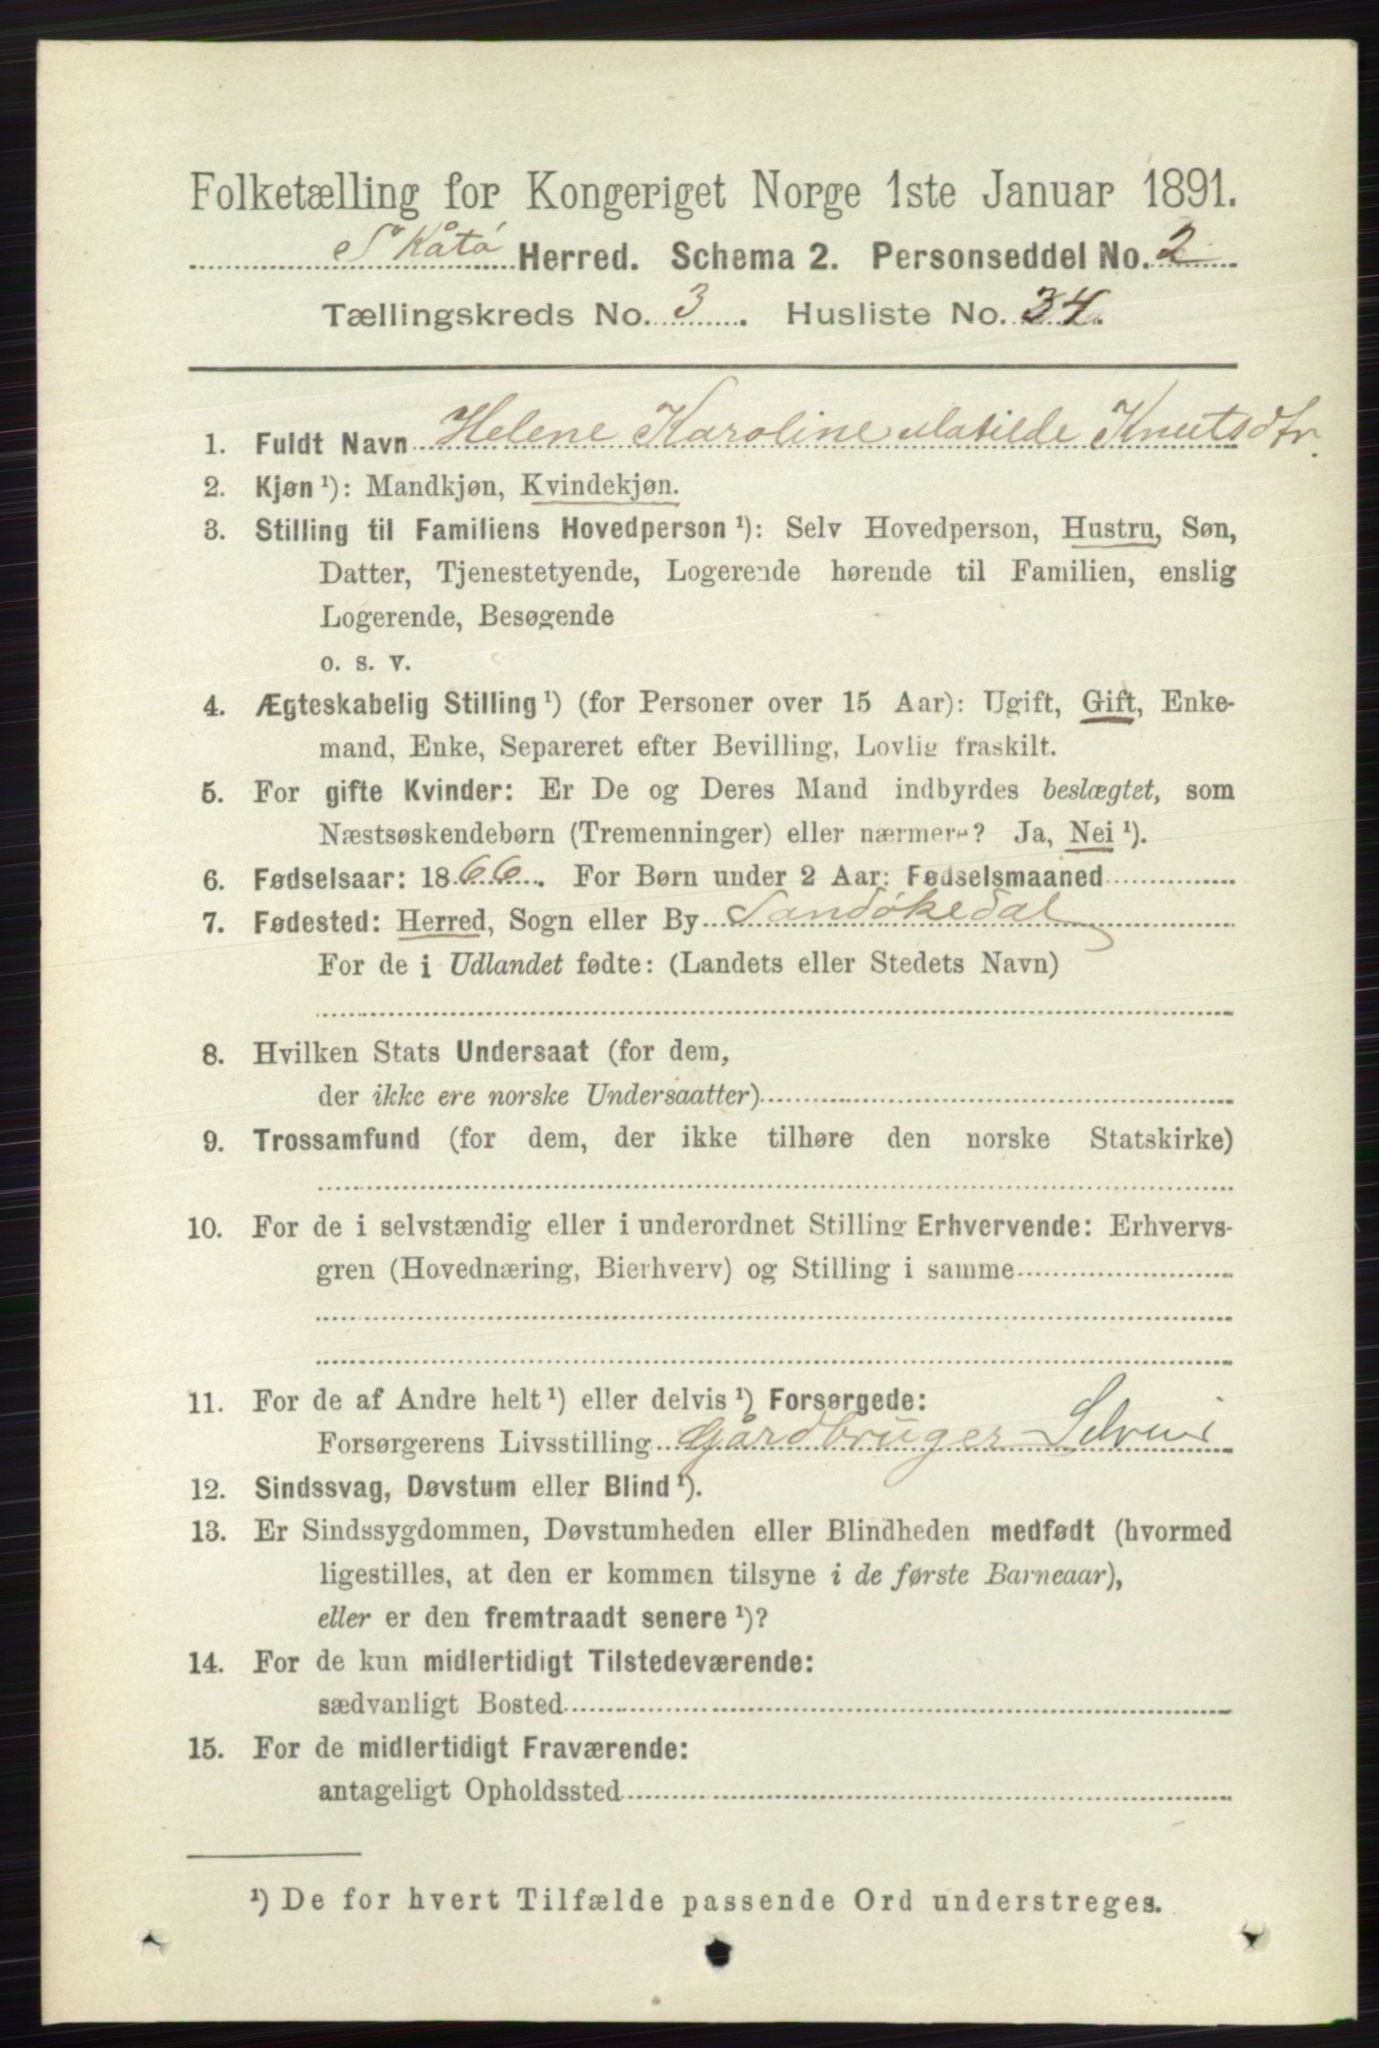 Folketælling for Kongeriget Norge 1ste Januar 1891.
Skåtø Herred. Schema 2. Personseddel No. 2
Tællingskreds No. 3. Husliste No. 34.
1. Fuldt Navn Helene Karoline Matilde Knutsdtr.
2. Kjøn ¹): Mandkjøn, Kvindekjøn.
3. Stilling til Familiens Hovedperson ¹): Selv Hovedperson, Hustru, Søn,
Datter, Tjenestetyende, Logerende hørende til Familien, enslig
Logerende, Besøgende
o. s. v.
4. Ægteskabelig Stilling ¹) (for Personer over 15 Aar): Ugift, Gift, Enke-
mand, Enke, Separeret efter Bevilling, Lovlig fraskilt.
5. For gifte Kvinder: Er De og Deres Mand indbyrdes beslægtet, som
Næstsøskendebørn (Tremenninger) eller nærmere? Ja, Nei ¹).
6. Fødselsaar: 1866. For Børn under 2 Aar: Fødselsmaaned
7. Fødested: Herred, Sogn eller By Sandøkedal
For de i Udlandet fødte: (Landets eller Stedets Navn)
8. Hvilken Stats Undersaat (for dem,
der ikke ere norske Undersaatter)
9. Trossamfund (for dem, der ikke tilhøre den norske Statskirke)
10. For de i selvstændig eller i underordnet Stilling Erhvervende: Erhvervs-
gren (Hovednæring, Bierhverv) og Stilling i samme
11. For de af Andre helt ¹) eller delvis ¹) Forsørgede:
Forsørgerens Livsstilling Gårdbruger Selveier
12. Sindssvag, Døvstum eller Blind ¹).
13. Er Sindssygdommen, Døvstumheden eller Blindheden medfødt (hvormed
ligestilles, at den er kommen tilsyne i de første Barneaar),
eller er den fremtraadt senere ¹)?
14. For de kun midlertidigt Tilstedeværende:
sædvanligt Bosted
15. For de midlertidigt Fraværende:
antageligt Opholdssted
¹) De for hvert Tilfælde passende Ord understreges.